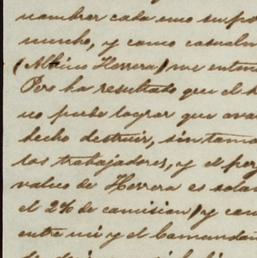 nombrar cada uno su po
mucho, y como casualm
(Albino Herrera) me enton
Pero ha resultado que el
no puede lograr que ava
hecho destruir, sin tama
los trabajadores, y el per
value de Herrera es solam
el 2% de comision) y com
entre mi y el Comandan